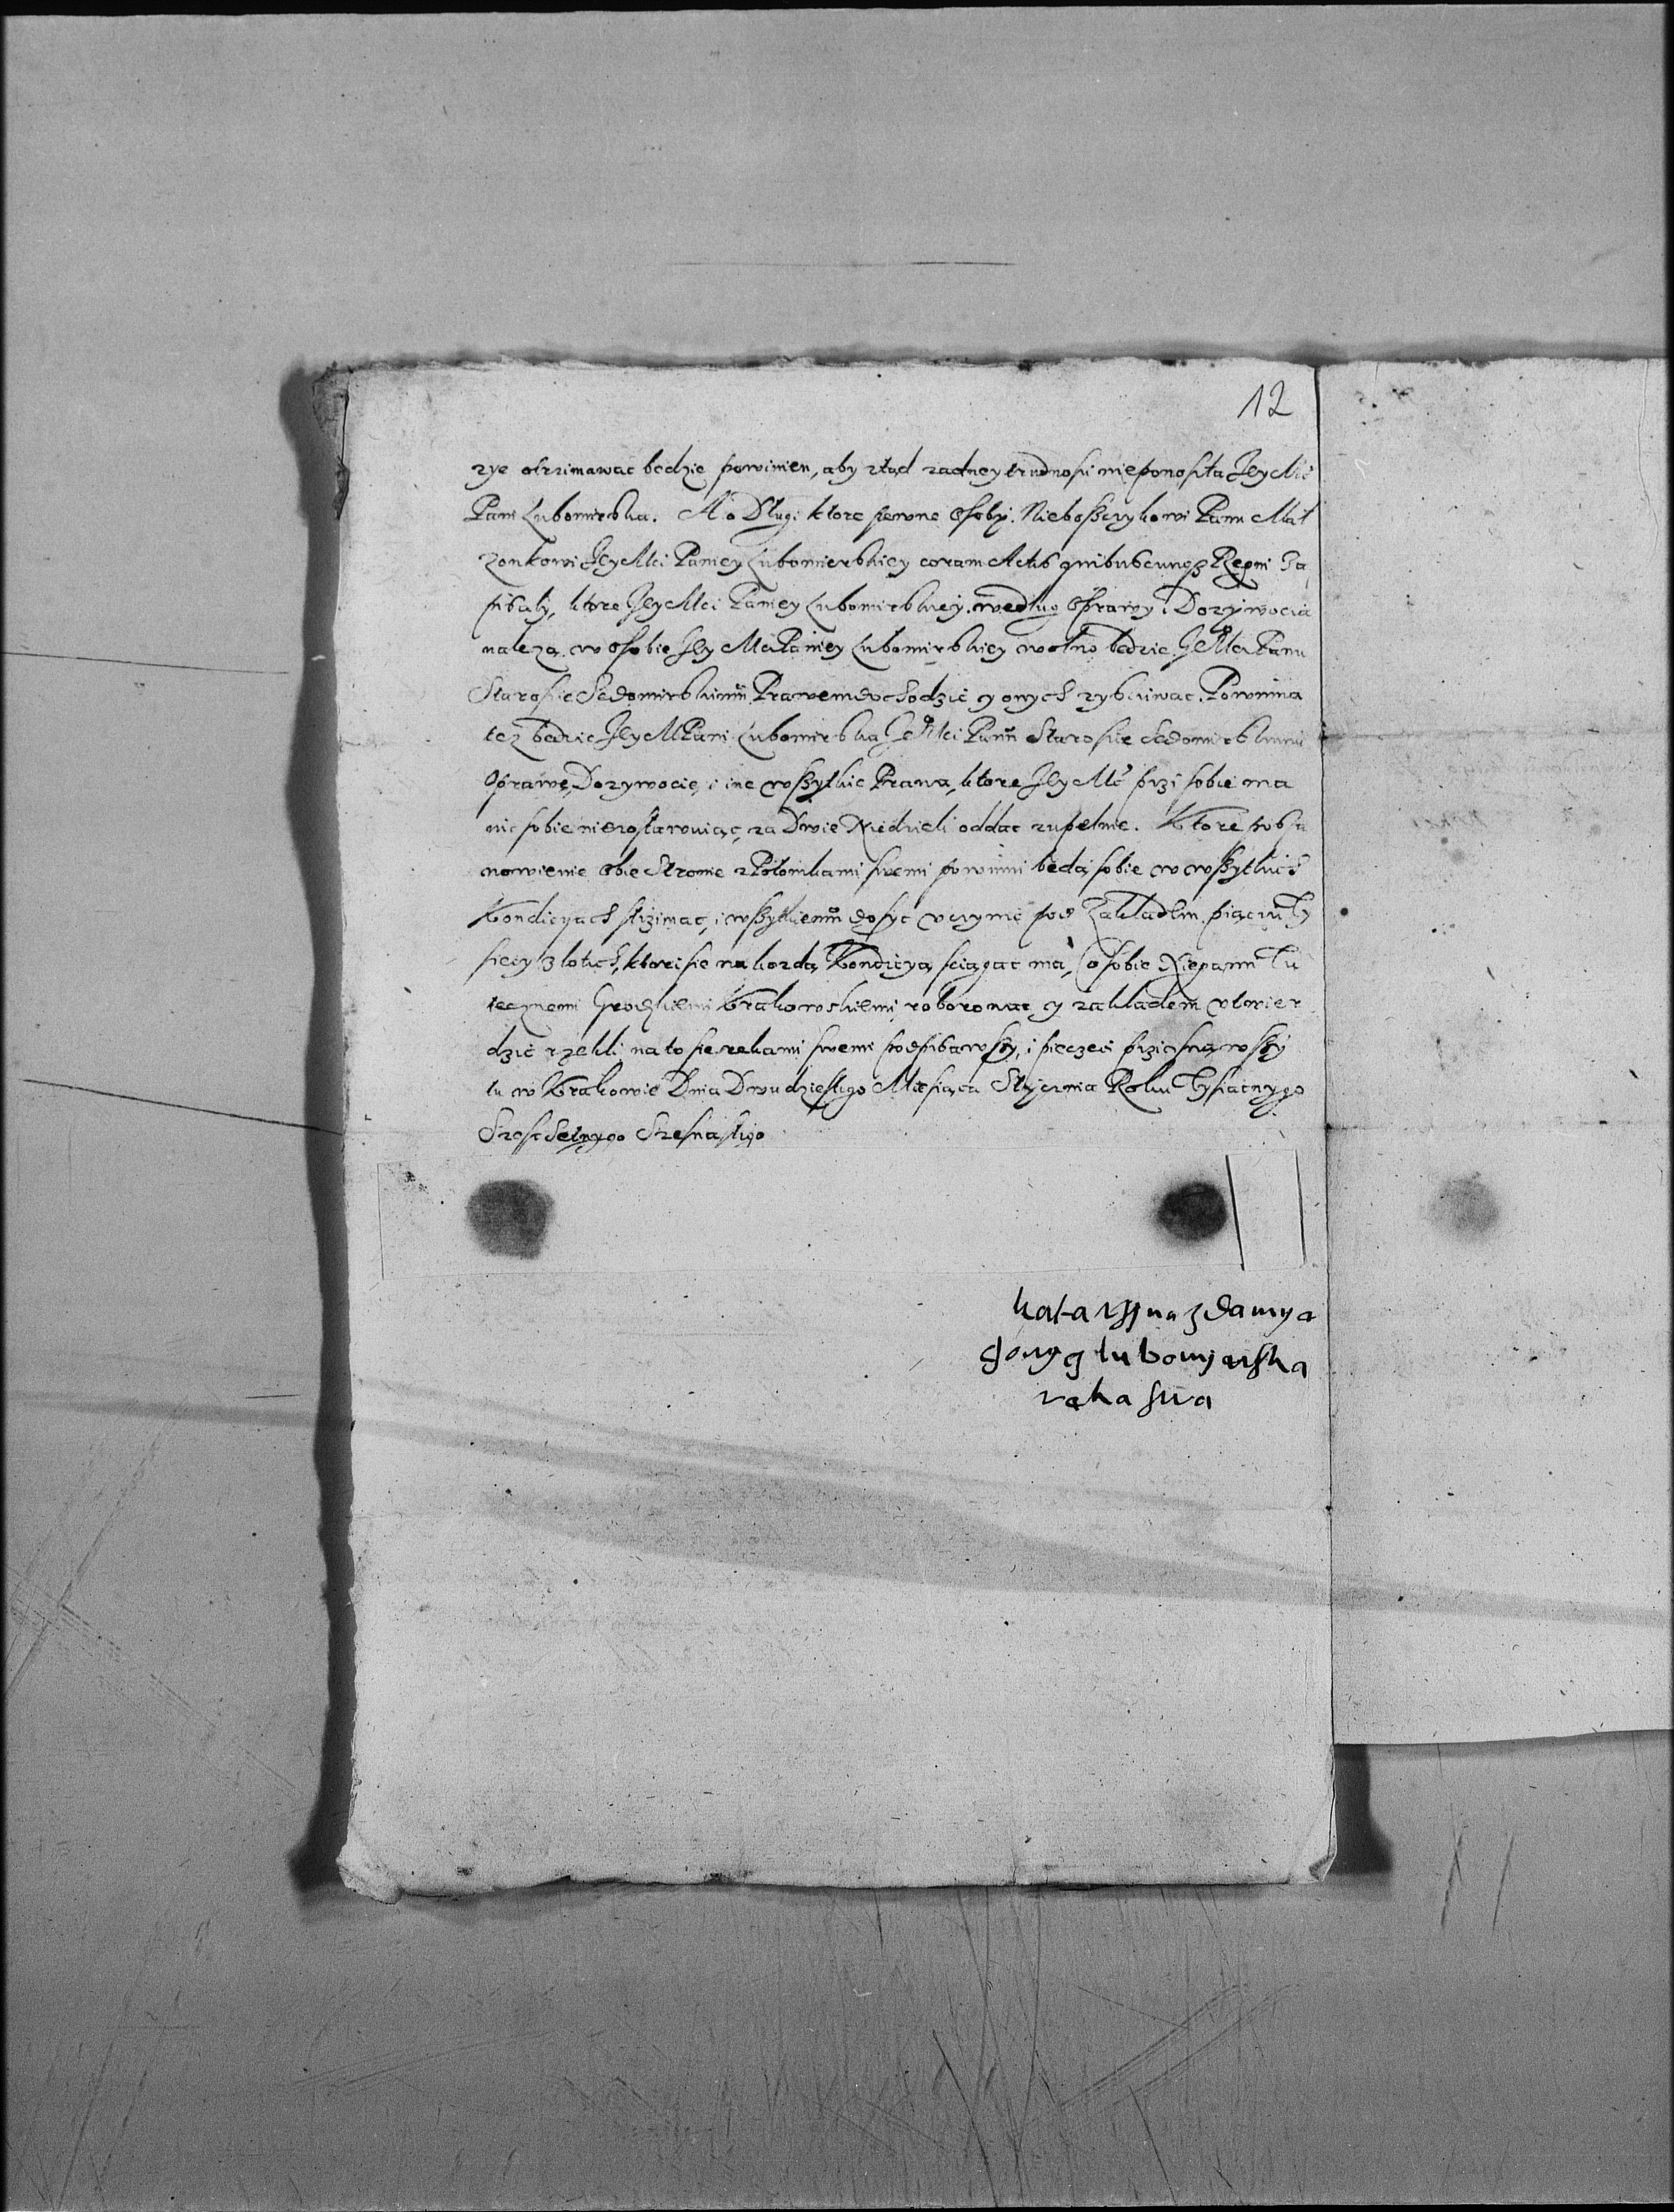 12
zye otrzimawac bedzie powinien, aby ztąd zadney trudnosci nieponosiła Jey Mć
Pani Lubomirska. A o Długi ktore pewne Osoby. Nieboszczykowi Panu Mał
zonkowi Jey Mci Paniey Lubomierskiey coram Actis quibuscunq Regni Za
pisały, ktore Jey Mci Paniey Lubomirskiey. według Oprawy i Dozywocia
należą. w osobie Jey Mci Paniey Lubomirskiey wolno bedzie Je Mci Panu
Staroscie Sędomirskiemu Prawem dochodzic y onych zyskiwac. Powinna
tez bedzie Jey M Pani Lubomirska Je Mci Panu Staroscie Sędomirskiemu
Oprawę, Dozywocie, i ine wszytkie Prawa, ktore Jey Mć przi sobie ma
nic sobie niezostawuiąc, za Dwie Niedzieli oddac zupełnie. Ktore posta
nowienie Obie Stronie z Potomkami swemi powinni będą sobie w wszytkich
Kondiciach ztrzimac, i wszytkiemu dosyc uczynic pod Zakładem. piąciu Ty
sięcy złotich, ktori sie na kozdą Kondicyą sciągac ma,
tecznemi Grodzkiemi Krakowskiemi roborowac y zakładem utwier
dzic rzekli, na to sie rekami swemi podpisawszy, i pieczęci przicisnąwszy
tu w Krakowie Dnia Dwudziestego Miesiąca Stycznia Roku Tysiącnego
Szescsetnego Szesnastego
katarzyna zdamya
lubomjerska
ręka swa